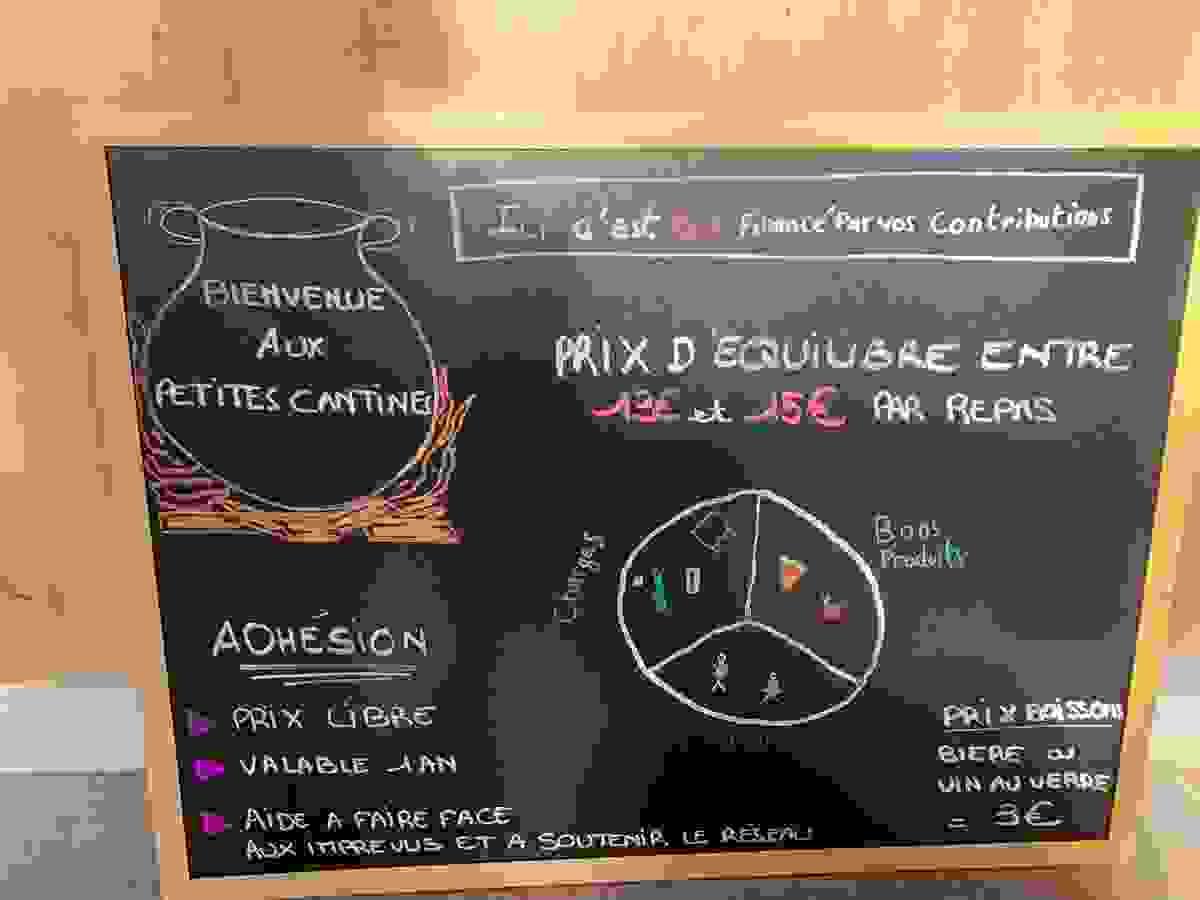 BIENVENUE
AUX
PETITES CANTINES
Ici c'est financé Par vos Contributions
PRIX D'ÉQUILIBRE ENTRE
13€ et 15€ PAR REPAS
Charges
Bons
Produits
ADHÉSION
PRIX LIBRE
VALABLE 1 AN
AIDE A FAIRE FACE
AUX IMPREVUS ET A SOUTENIR LE RÉSEAU
PRIX BOISSONS
BIERE OU
VIN AU VERRE
= 3€